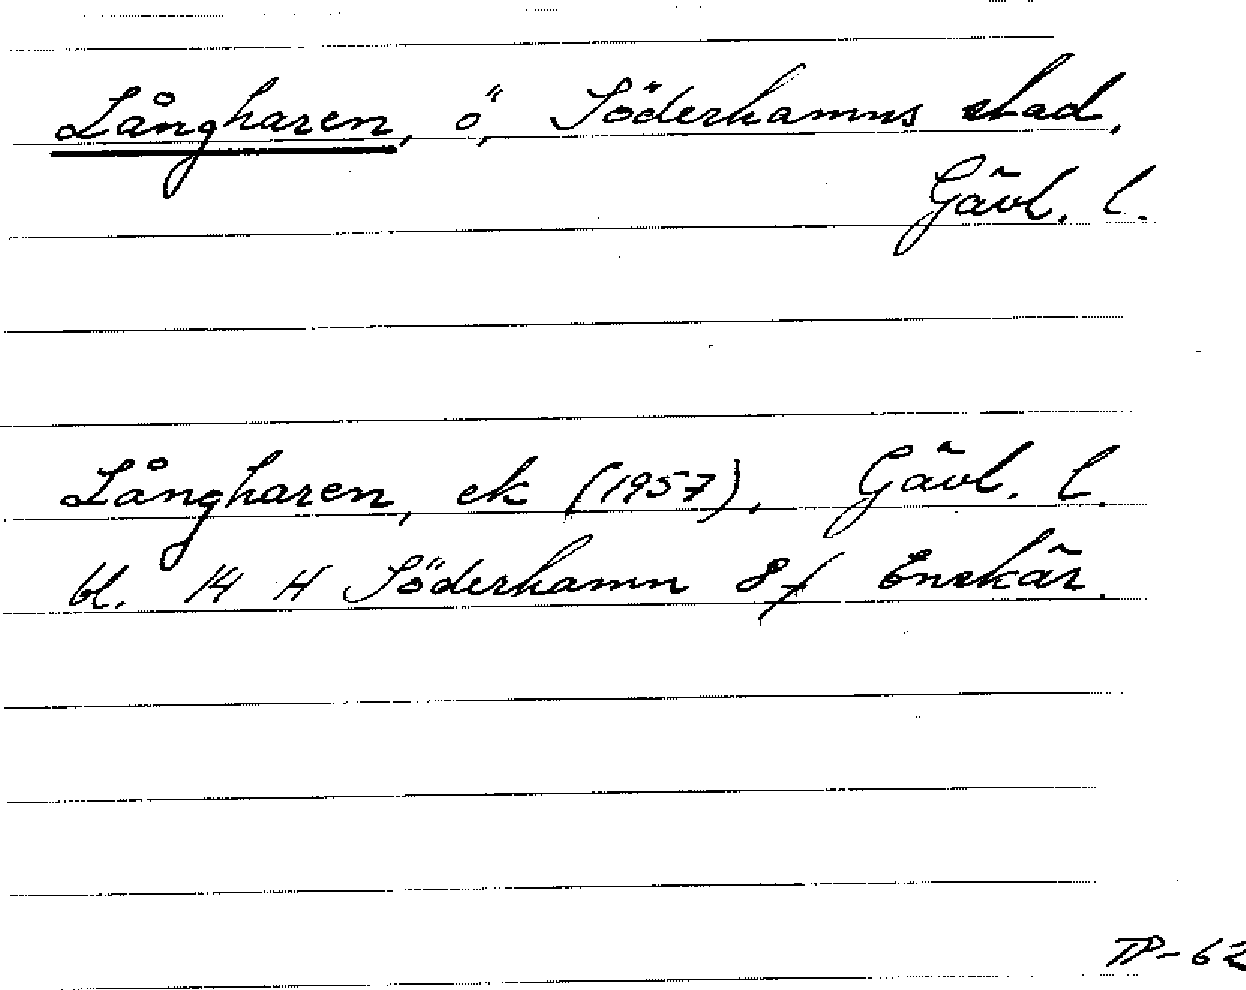 Långharen, ö, Söderhamns stad.
Gävl. l.
Långharen, ek (1957), Gävl. l.
bl. 14 H Söderhamn 8f Enskär.
TP-62